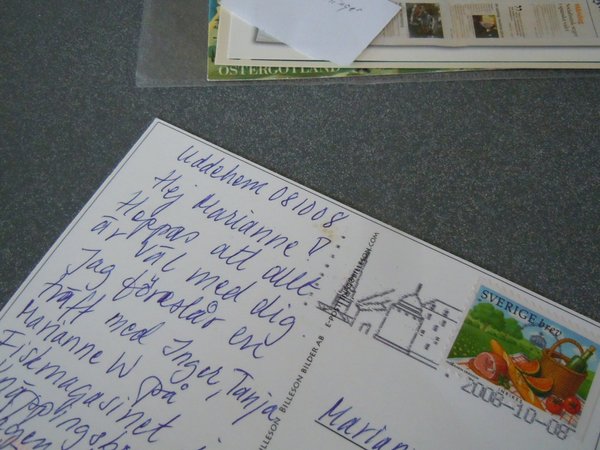 ÖSTERGÖTLAND
Uddehem 081008
Hej Marianne!
Hoppas att allt
är väl med dig
Jag föreslår en
träff med Inger, Tanja
Marianne W på
Fiskmagasinet i
BILLESON BILDER AB
SVERIGE brev
2008-10-08
Marian